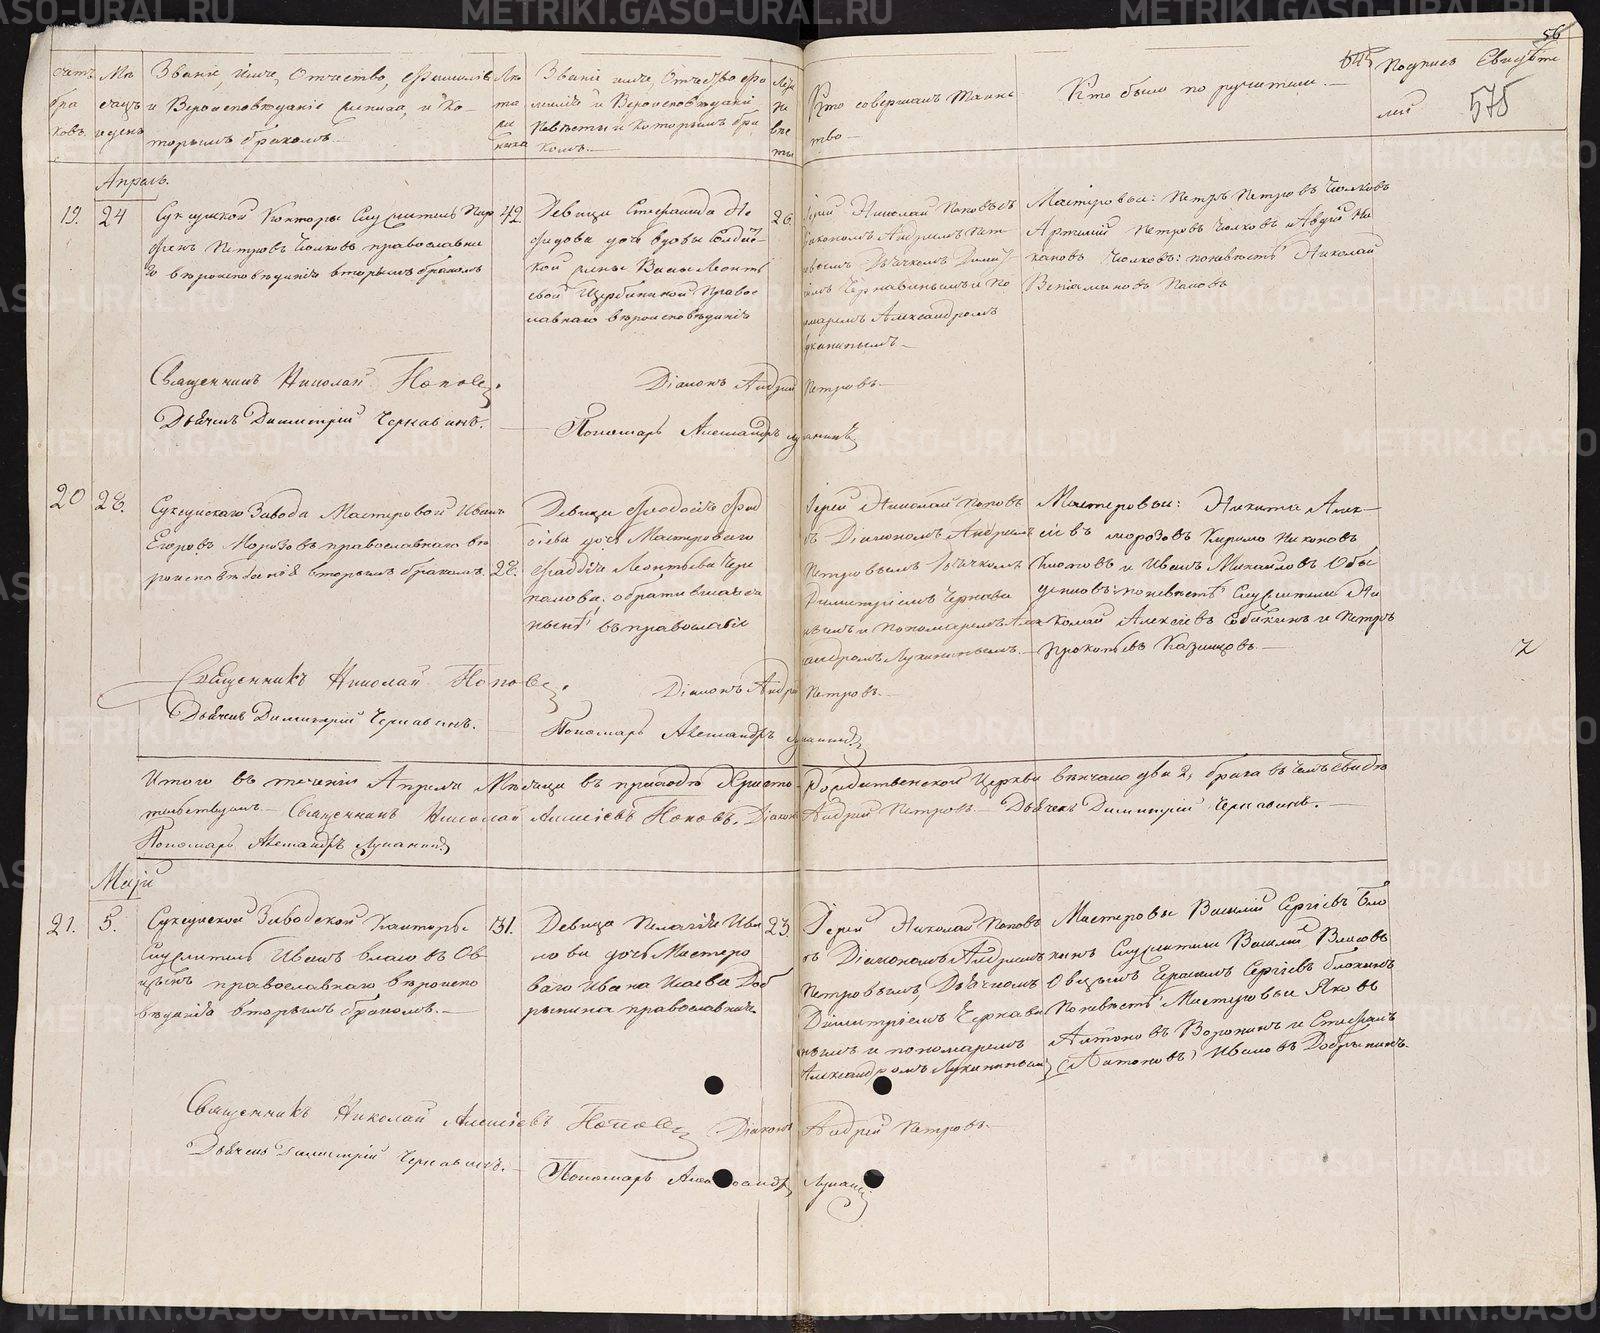 56
645
575
Счетъ браковъ
Мѣсяцъ и день
Званіе, имя, Отчество, Фамилія
и Вероисповѣданіе жениха, и Ко-
торымъ бракомъ.
Лѣта жениха
Званіе имя, Отчество Фа
милія и Вероисповѣданіе
Невѣсты и которымъ бра
комъ.
Лѣта невѣсты
Кто совершалъ Таинс
тво
Кто были поручители.
Подпись Свидѣте
лей
Апрель.
19.
24
Суксунской Конторы Служитель
Петровъ Чюлковъ православна
го вѣроисповѣданія вторымъ бракомъ
42
Девица Стефанида Не
федова дочь вдовы
кой жены Леонть
евой Щербининой Право
славнаго вѣроисповѣданія
26
Іерей Николай Поповъ съ
Діакономъ Андреемъ Пет
ровымъ Дьячкомъ Димит
ріемъ Чернавинымъ и По
номаремъ Александромъ
Лукинымъ
Мастеровыи: Петръ Петровъ Чюлковъ
Артемій Петровъ Чюлковъ и Авдей Ни
кановъ Чюлковъ: по невѣстѣ Николай
Веніаминовъ Поповъ
Священникъ Николай Поповъ.
Діаконъ Андрей Петровъ
Дьячекъ Димитрій Чернавинъ.
Пономарь Александръ Лукининъ
20
28.
Суксунскаго Завода Мастеровой Иванъ
Егоровъ Морозовъ православнаго вѣ
роисповѣданія вторымъ бракомъ.
28.
Девица Феодосія Фад
дѣева дочь Мастероваго
Фаддѣя Леонтьева Чере
панова. обратившаяся
нынѣ въ православіе
Іерей Николай Поповъ
съ Діакономъ Андреемъ
Петровымъ Дьячкомъ
Димитріемъ Чернави
нымъ и Пономаремъ Алек
сандромъ Лукининымъ.
Мастеровыи: Никита Алек
сѣевъ Морозовъ Кирило Никоновъ
и Иванъ Михаиловъ Обы
деновъ: по невѣстѣ Служители Ни
колай Алексѣевъ Собакинъ и Петръ
Прокопьевъ Казанцовъ.
Священникъ Николай Поповъ.
Діаконъ Андрей Петровъ.
Дьячекъ Димитрій Чернавинъ.
Пономарь Александръ Лукининъ
Итого въ теченіи Апреля Мѣсяца въ приходѣ Христо-Рождественской Церкви вѣнчано два 2, брака въ чемъ свидѣ
тельствуемъ. Священникъ Николай Алексіевъ Поповъ. Діаконъ Андрей Петровъ Дьячекъ Димитрій Чернавинъ.
Пономарь Александръ Лукининъ
Маія
21.
5.
Суксунской Заводской Канторы
Служитель Иванъ Власовъ Ов
цынъ православнаго вѣроиспо
вѣданія вторымъ бракомъ.
31.
Девица Пелагія Ива
нова дочь Мастеро
ваго Ивана Исаева Доб
рынина православнаго
23.
Іерей Николай Поповъ
съ Діакономъ Андреемъ
Петровымъ, Дьячкомъ
Димитріемъ Чернави
нымъ и пономаремъ
Александромъ Лукининымъ
Мастеровые Василій Сергѣевъ Бло
хинъ Служители Василій Власовъ
Овцынъ Герасимъ Сергѣевъ Блохинъ
По невѣстѣ Мастеровыи Яковъ
Антоновъ Воронинъ и Стефанъ
(Антоновъ) Ивановъ Добрынинъ.
Священникъ Николай Алексіевъ Поповъ
Діаконъ Андрей Петровъ.
Дьячекъ Димитрій Чернавинъ.
Пономарь Александръ Лукининъ
METRIKI.GASO-URAL.RU